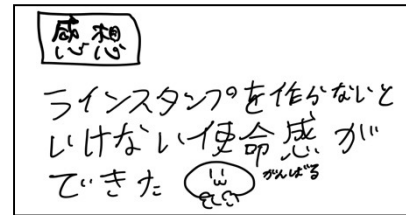 感想
ラインスタンプを作らないと
いけない使命感が
できた
がんばる